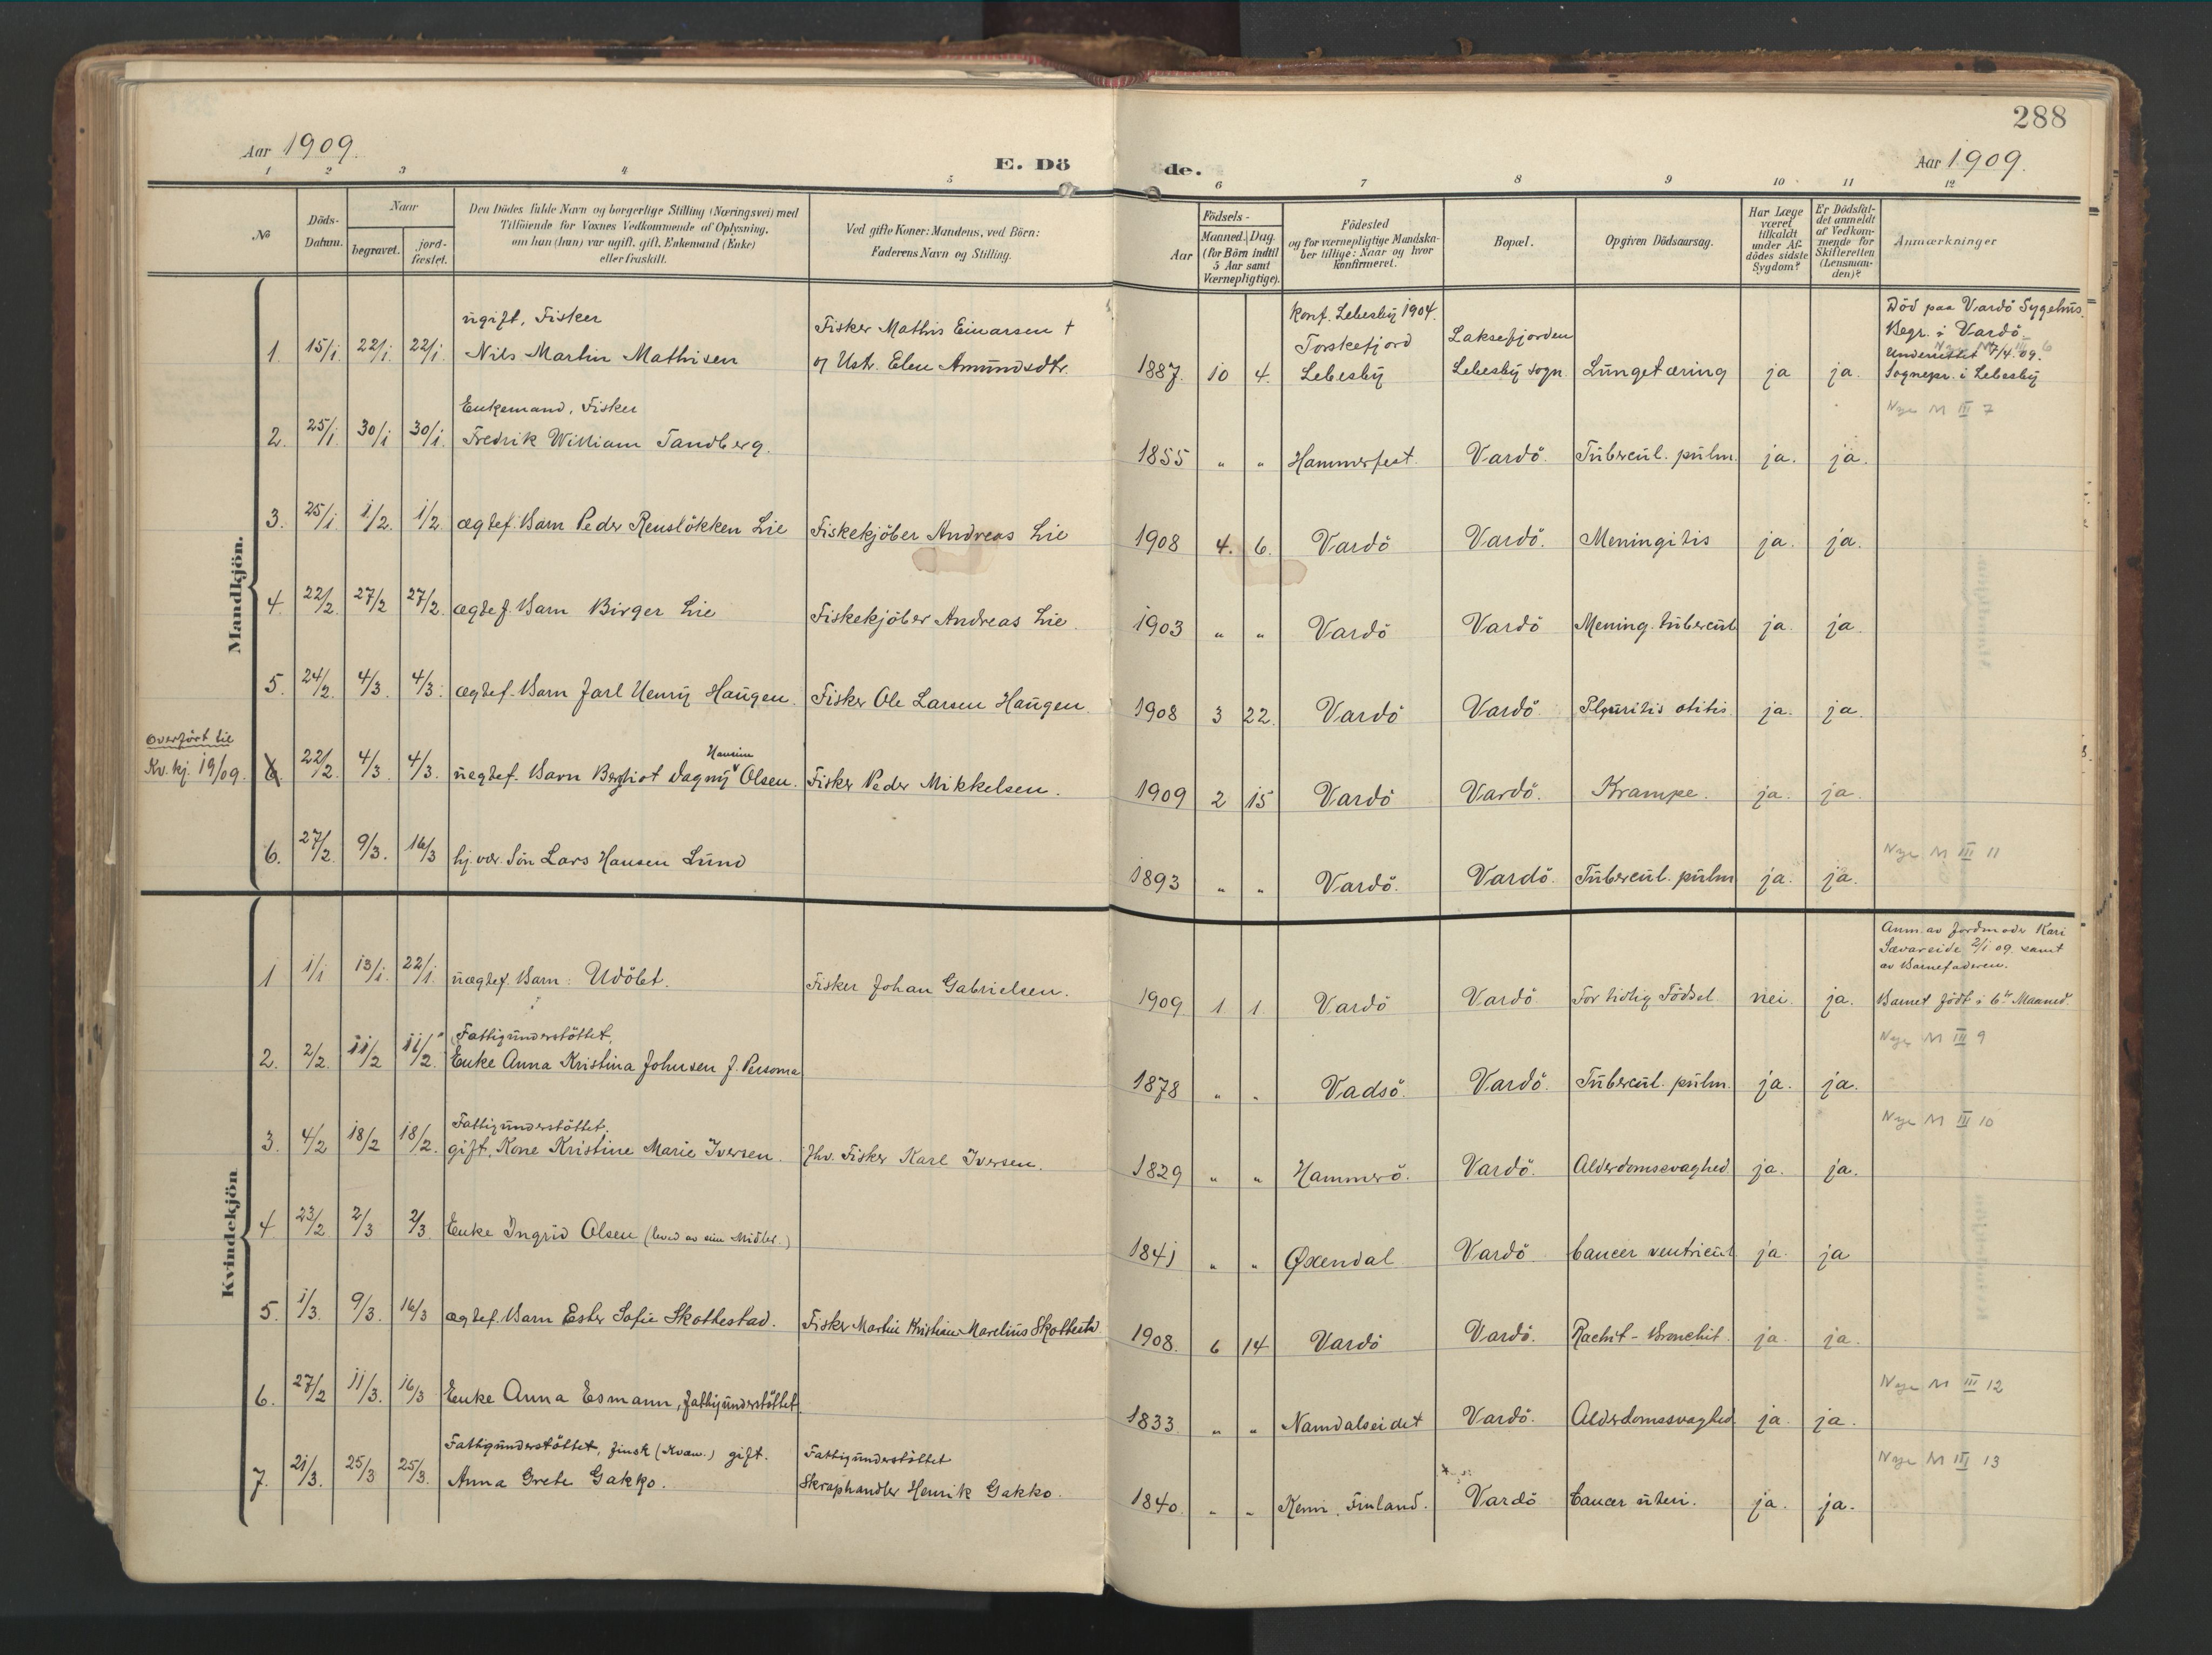 288
Aar 1909.
E. Döde.
Aar 1909.
1 2 3 4 5 6 7 8 9 10 11 12
№
Döds-Datum.
Naar
begravet.
jord-fæstet.
Den Dödes fulde Navn og borgerlige Stilling (Næringsvei) med
Tilföiende for Voxnes Vedkommende af Oplysning,
om han (hun) var ugift, gift, Enkemand (Enke)
eller fraskilt.
Ved gifte Koner: Mandens, ved Börn:
Faderens Navn og Stilling.
Födsels-
Aar
Maaned. Dag
(for Börn indtil
5 Aar samt
Værnepligtige).
Födested
og for værnepligtige Mandska-
ber tillige: Naar og hvor
konfirmeret.
Bopæl.
Opgiven Dödsaarsag.
Har Læge
været
tilkaldt
under Af-
dödes sidste
Sygdom?
Er Dödsfal-
det anmeldt
af Vedkom-
mende for
Skifteretten
(Lensman-
den)?
Anmærkninger
Mandkjön.
ugift, Fisker
Fisker Mathis Einarsen †
konf. Lebesby 1904.
Laksefjorden
Död paa Vardö Sygehus.
Begr. i Vardö
1. 15/1 22/1 22/1 Nils Martin Mathisen
og Ustr. Elen Amundsdtr.
Torskefjord
Underrettet 7/4 09.
1887. 10 4. Lebesby Lebesby sogn. Lungetæring ja ja. Sognepr. i Lebesby
Enkemand, Fisker
Nye M III 7
2. 25/1 30/1 30/1. Fredrik William Tandberg.
1855 " " Hammerfest. Vardö. Tubercul. pulm. ja. ja.
3. 25/1 1/2. 1/2 ægtef. Barn Peder Renslökken Lie Fiskekjöber Andreas Lie 1908 4. 6. Vardö Vardö. Meningitis ja. ja.
4. 22/2 27/2 27/2. ægtef. Barn Birger Lie Fiskekjöber Andreas Lie. 1903 " " Vardö Vardö Mening. tubercul. ja. ja.
5. 24/2. 4/3. 4/3. ægtef. Barn Jarl Henry Haugen. Fisker Ole Larsen Haugen. 1908 3 22. Vardö Vardö Pleuritis otitis ja. ja.
Overfört til
Kv. kj. 19/09.
Hansine
6. 22/2. 4/3. 4/3. uegtef. Barn Bergliot Dagny Olsen. Fisker Peder Mikkelsen. 1909 2 15 Vardö Vardö. Krampe. ja. ja.
6. 27/2. 9/3. 16/3 hj. vær. Sön Lars Hansen Lund 1893 " " Vardö. Vardö. Tubercul. pulm ja. ja. Nye M III 11
Kvindekjön
Anm. av Jordmoder Kari
Sævareide 2/1 09. samt
av Barnefaderen.
1 1/1 13/1. 22/1. uægtef. Barn: Udöbt. Fisker Johan Gabrielsen. 1909 1. 1. Vardö Vardö For tidlig Födsel. nei. ja. Barnet födt i 6te Maaned.
Fattigunderstöttet.
Nye M III 9
2. 2/2. 11/2 11/2. Enke Anna Kristina Johnsen f. Persoma 1878 " " Vadsö. Vardö. Tubercul. pulm. ja. ja.
Fattigunderstöttet.
Nye M III 10
3. 4/2 18/2 18/2. gift, Kone Kristine Marie Iversen. Fhv. Fisker Karl Iversen. 1829 " " Hammerö. Vardö. Alderdomssvaghed ja. ja.
4 23/2 2/3 2/3. Enke Ingrid Olsen (leved av sine Midler.) 1841 " " Øxendal Vardö Cancer ventricul. ja. ja
5. 1/3. 9/3. 16/3 ægtef. Barn Ester Sofie Skottestad. Fisker Martin Kristian Marelius Skottestd 1908. 6 14 Vardö Vardö. Rachit - Bronchit. ja. ja.
6. 27/2 11/3. 16/3 Enke Anna Esmann, fattigunderstöttet. 1833. " " Namdalseidet Vardö. Alderdomssvaghed ja. ja. Nye M III 12
Fattigunderstöttet, finsk (Kvæn.) gift. Fattigunderstöttet
Nye M III 13
7. 21/3. 25/3 25/3. Anna Grete Gakko. Skraphandler Henrik Gakko. 1840. " " Kemi, Finland. Vardö Cancer uteri. ja. ja.